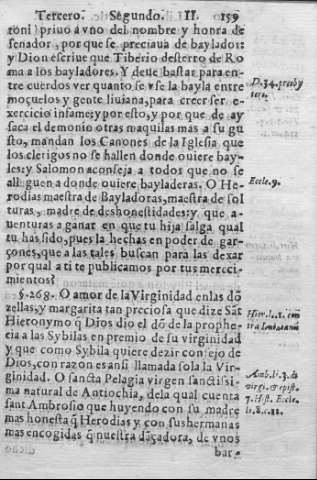 Tercero. Segundo. II. 159
toni) priuo a vno del nombre y honra de
senador, por que se preciaua de baylador:
y Dion escriue que Tiberio desterro de Ro
ma a los bayladores. Y deue bastar para en-
tre cuerdos ver quanto se vse la bayla entre
moçuelos y gente liuiana, para creer ser e-
xercicio infame; y por esto, y por que de ay
saca el demonio otras maquilas mas a su gu
sto, mandan los Canones de la Iglesia que
los clerigos no se hallen donde ouiere bay-
les: y Salomon aconseja a todos que no se
alleguen a donde ouiere bayladeras. O He-
rodias maestra de Bayladoras, maestra de sol
turas, madre de deshonestidades: y que a-
uenturas a ganar en que tu hija salga qual
tu has sido, pues la hechas en poder de gar-
çones, que a las tales buscan para las dexar
por qual a ti te publicamos por tus mereci-
mientos?
§. 268. O amor de la Virginidad en las dõ
zellas, y margarita tan preciosa que dize Sãt
Hieronymo q̃ Dios dio el dõ de la prophe-
cia a las Sybilas en premio de su virginidad
y que como Sybila quiere dezir consejo de
Dios, con razon es ansi llamada sola la Vir-
ginidad. O sancta Pelagia virgen sanctissi-
ma natural de Antiochia, dela qual cuenta
sant Ambrosio que huyendo con su madre
mas honesta q̃ Herodias y con sus hermanas
mas encogidas q̃ nuestra dãçadora, de vnos
bar-
D. 34. presby
teri.
Eccle. 9.
Hier. l. 1. con
tra Iouinianũ
Amb. li. 3. de
virgi. & epist.
7. Hist. Eccle.
li. 8. c. 12.